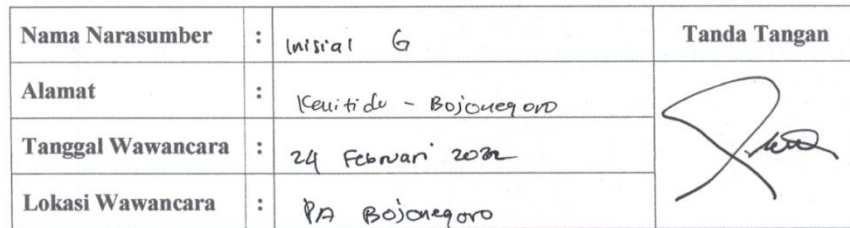 Nama Narasumber : Inisial G Tanda Tangan
Alamat : - Bojonegoro
Tanggal Wawancara : 24 Februari 2022
Lokasi Wawancara : PA Bojonegoro